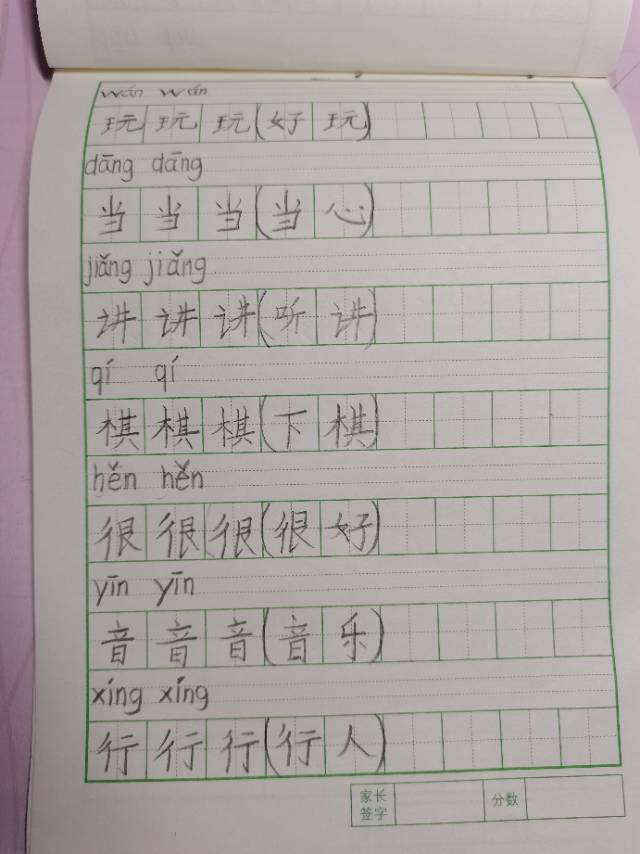 wán wán
玩 玩 玩 (好 玩)
dāng dāng
当 当 当 (当 心)
jiǎng jiǎng
讲 讲 讲 (听 讲)
qí qí
棋 棋 棋 (下 棋)
hěn hěn
很 很 很 (很 好)
yīn yīn
音 音 音 (音 乐)
xíng xíng
行 行 行 (行 人)
家长签字 分数